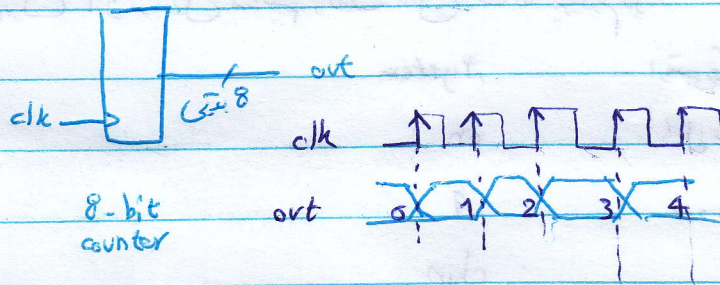 out
8 بیتی
clk
clk
8-bit
counter
out
0 1 2 3 4